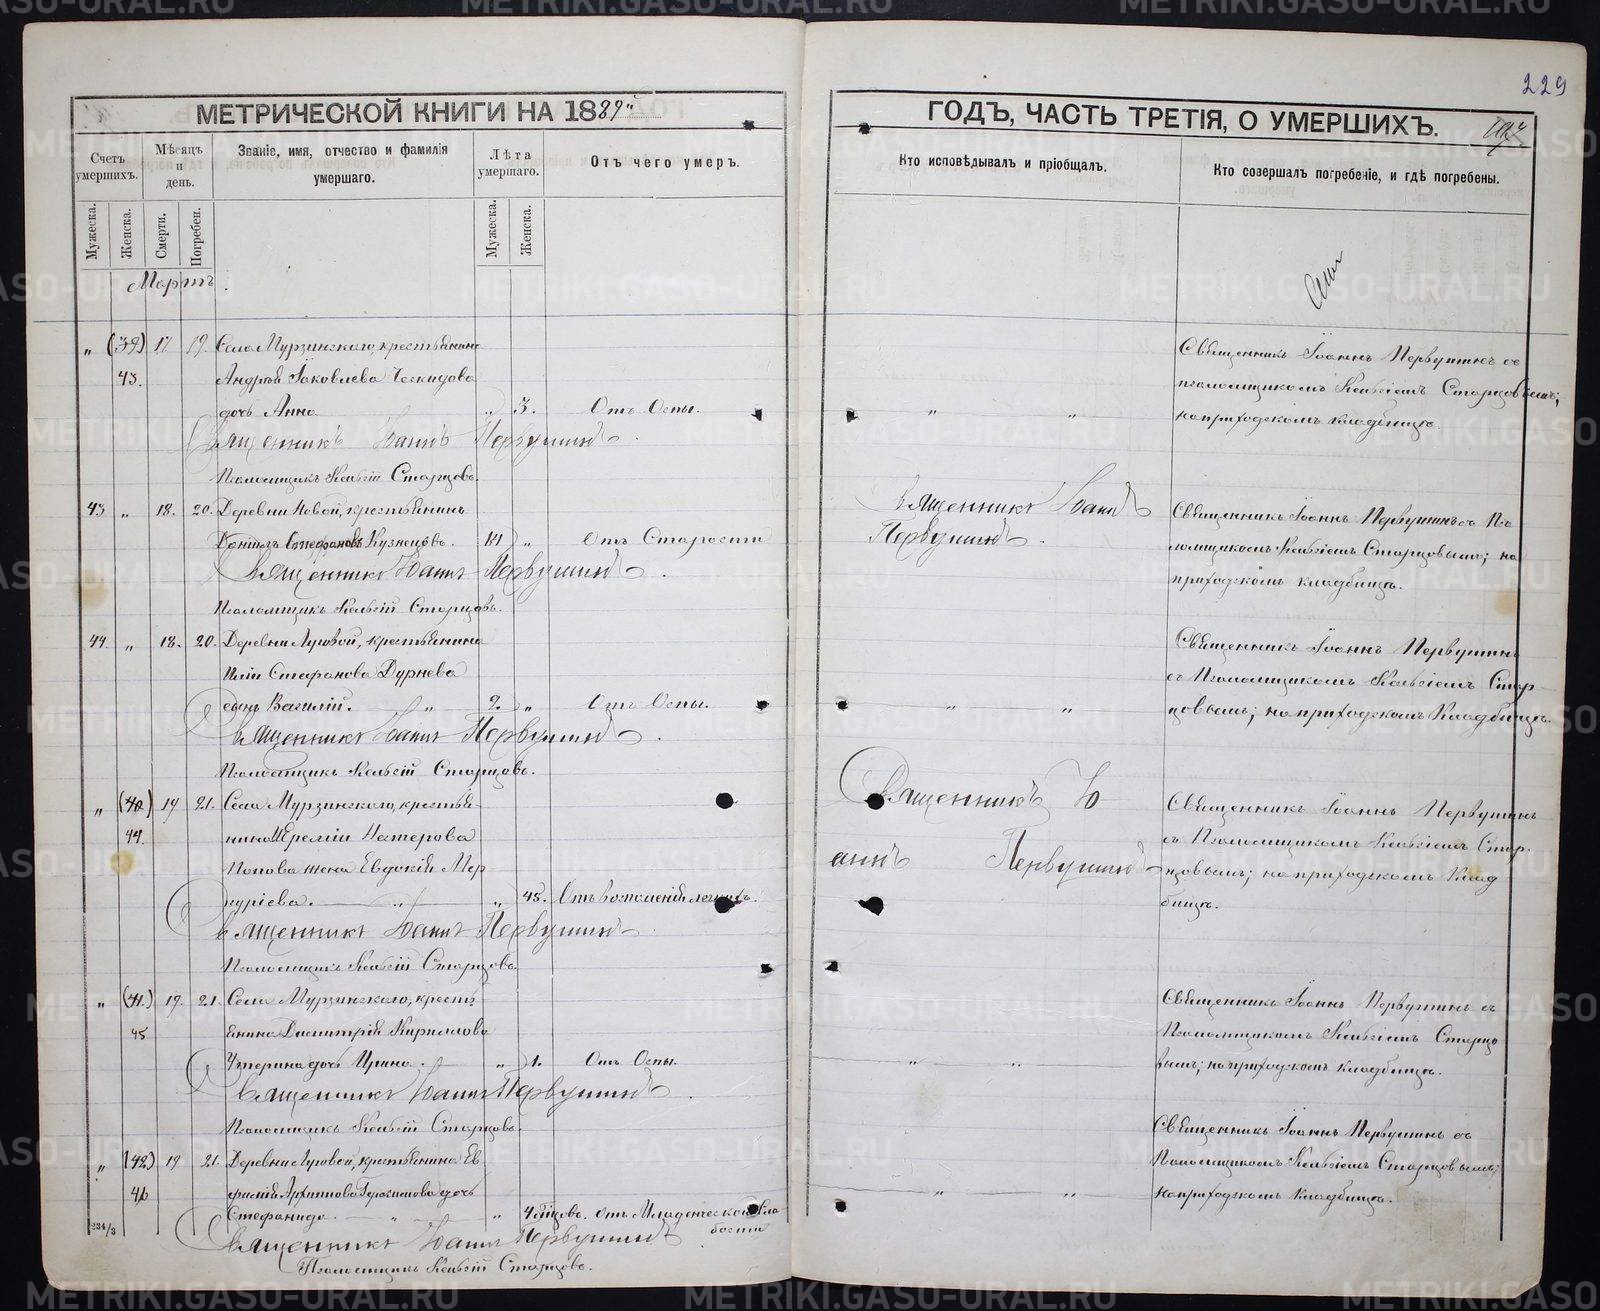 229
МЕТРИЧЕСКОЙ КНИГИ НА 1889
ГОДЪ, ЧАСТЬ ТРЕТІЯ, О УМЕРШИХЪ.
Счетъ умершихъ.
Мѣсяцъ и день.
Званіе, имя, отчество и фамилія умершаго.
Лѣта умершаго.
Отъ чего умеръ.
Кто исповѣдывалъ и пріобщалъ.
Кто совершалъ погребеніе, и гдѣ погребены.
Мужеска.
Женска.
Смерти.
Погребен.
Мужеска.
Женска.
Мартъ.
„ (39) 17 19. Села Мурзинскаго, крестьянина
43. Андрея Іаковлева
дочь Анна „ 3. Отъ Оспы. „ „
Священникъ Іоаннъ Первушинъ.
Псаломщикъ Старцовъ.
Священникъ Іоаннъ Первушинъ съ
псаломщикомъ Старцовымъ;
на приходскомъ кладбищѣ.
43 „ 18. 20. Деревни Новой, крестьянинъ
Стефановъ Кузнецовъ. „ Отъ Старости
Священникъ Іоаннъ Первушинъ.
Псаломщикъ Старцовъ.
Священникъ Іоаннъ
Первушинъ.
Священникъ Іоаннъ Первушинъ съ Пса
ломщикомъ Старцовымъ; на
приходскомъ кладбищѣ.
44. „ 18. 20. Деревни Луговой, крестьянина
Иліи Стефанова Дурнева
сынъ Василій. „ 2. „ Отъ Оспы. „ „
Священникъ Іоаннъ Первушинъ.
Псаломщикъ Старцовъ.
Священникъ Іоаннъ Первушинъ
съ Псаломщикомъ Стар
цовымъ; на приходскомъ кладбищѣ.
„ (40) 19 21. Села Мурзинскаго, крестья
44. нина Іереміи
Попова жена Евдокія Мер
куріева. „ „ 45. Отъ воспаленія легкихъ.
Священникъ Іоаннъ Первушинъ.
Псаломщикъ Старцовъ.
Священникъ Іо
аннъ Первушинъ
Священникъ Іоаннъ Первушинъ
съ Псаломщикомъ Стар
цовымъ; на приходскомъ клад
бищѣ.
„ (41.) 19. 21. Села Мурзинскаго, кресть
45 янина Димитрія Кириллова
дочь Ирина. „ 1. Отъ Оспы. „ „
Священникъ Іоаннъ Первушинъ.
Псаломщикъ Старцовъ.
Священникъ Іоаннъ Первушинъ съ
Псаломщикомъ Старцо
вымъ; на приходскомъ кладбищѣ.
„ (42) 19 21. Деревни Луговой, крестьянина Ев
46 Архиппова Герасимова дочь
Стефанида. „ „ Отъ Младенческой сла
бости
Священникъ Іоаннъ Первушинъ
Псаломщикъ Старцовъ.
Священникъ Іоаннъ Первушинъ съ
Псаломщикомъ Старцовымъ;
на приходскомъ кладбищѣ.
234/3
METRIKI.GASO-URAL.RU